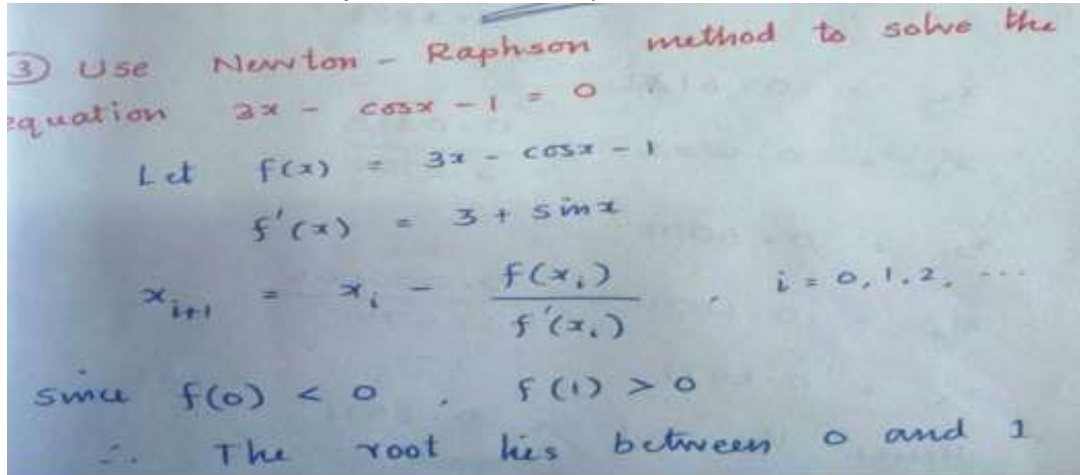 3) Use Newton - Raphson method to solve the
equation 3x - cosx - 1 = 0
Let f(x) = 3x - cosx - 1
f'(x) = 3 + sinx
x_{i+1} = x_i - f(x_i) / f'(x_i) , i = 0, 1, 2, ...
since f(0) < 0 , f(1) > 0
∴ The root lies between 0 and 1